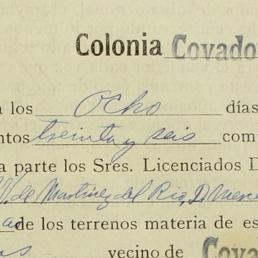 Colonia Covado
a los Ocho días
ntos treinta y seis com
a parte los Sres. Licenciados D
V. de Martinez del Rio, D. Mene
de los terrenos materia de es
vecino de Cova